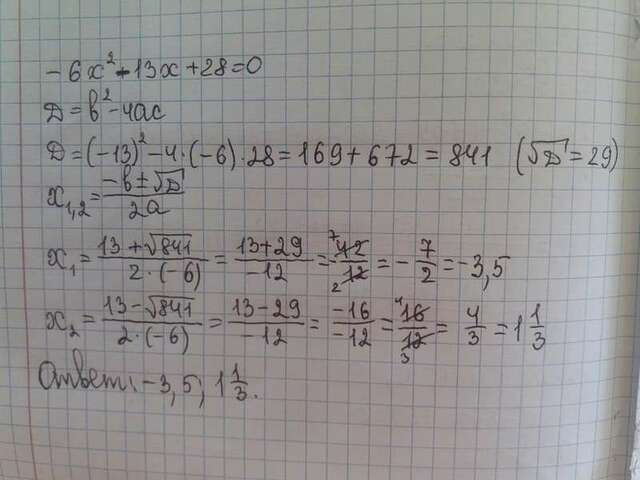 -6x²-13x+28=0
D=b²-4ac
D=(-13)²-4·(-6)·28=169+672=841 (√D=29)
x₁,₂=(-b±√D)/(2a)
x₁=(13+√841)/(2·(-6))=(13+29)/(-12)=-42/12=-7/2=-3,5
x₂=(13-√841)/(2·(-6))=(13-29)/(-12)=(-16)/(-12)=16/12=4/3=1 1/3
Ответ: -3,5; 1 1/3.